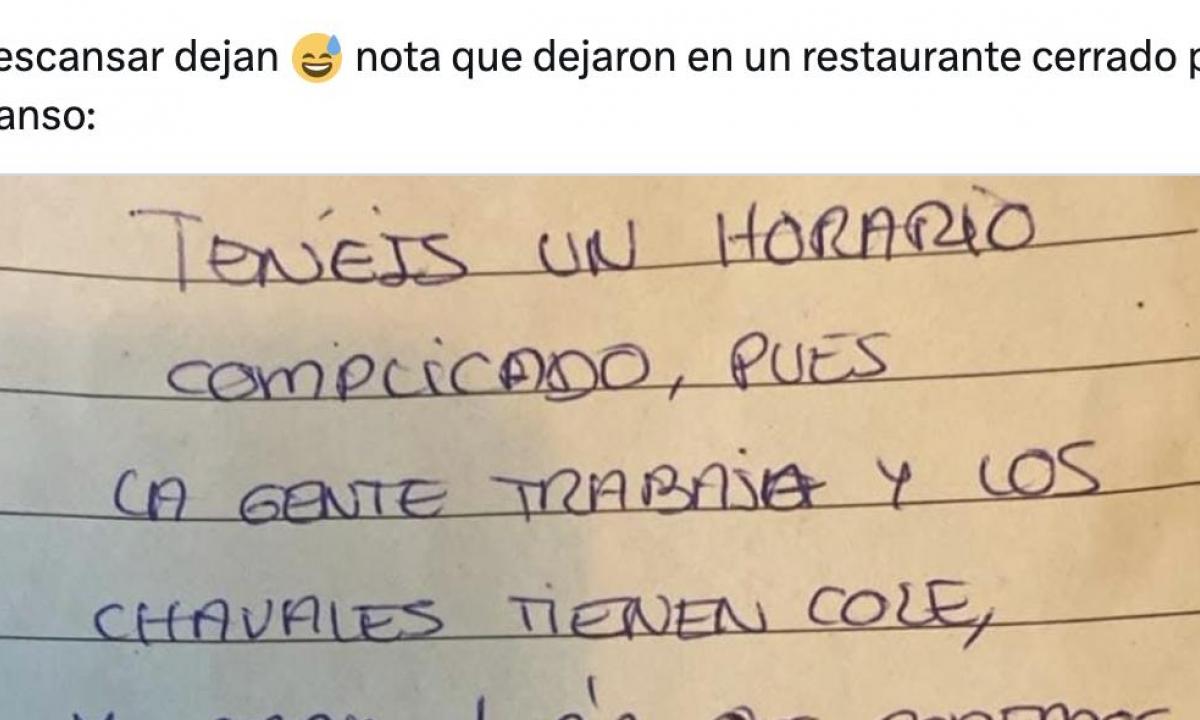 escansar dejan 😅 nota que dejaron en un restaurante cerrado p
anso:
TENÉIS UN HORARIO
COMPLICADO, PUES
LA GENTE TRABAJA Y LOS
CHAVALES TIENEN COLE,